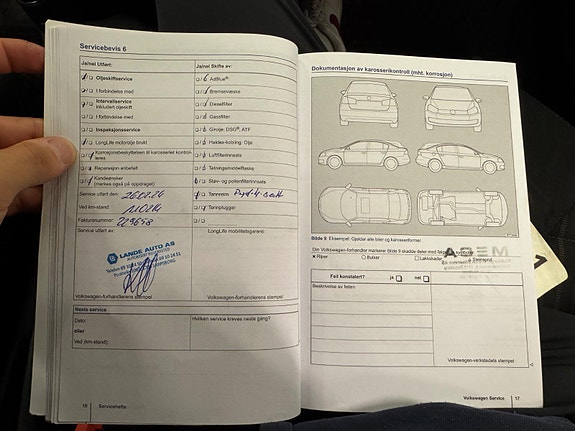 Servicebevis 6
Ja/nei Utført:
Ja/nei Skifte av:
Oljeskiftservice
AdBlue®
I forbindelse med
Bremsevæske
Intervallservice
inkludert oljeskift
Dieselfilter
I forbindelse med
Gassfilter
Inspeksjonsservice
Girolje: DSG®, ATF
LongLife motorolje brukt
Haldex-kobling: Olje
Korrosjonsbeskyttelsen til karosseriet kontrolleres
Luftfilterinnsats
Reparasjon anbefalt
Tetningsmiddelflaske
Kundeønsker
(merkes også på oppdraget)
Støv- og pollenfilterinnsats
Service utført den:
Tannreim
Ved km-stand:
Tannpluggar
Fakturanummer: 229658
Service utført av:
LongLife mobilitetsgaranti:
LANDE AUTO AS
Volkswagen-forhandlerens stempel
Volkswagen-forhandlerens stempel
Neste service
Dato:
Hvilken service kreves neste gang?
eller
Ved (km-stand):
16
Servicehefte
Dokumentasjon av karosserikontroll (mht. korrosjon)
Bilde 9 Eksempel: Gjelder alle biler og karosseriformer
Riper
Bulker
Lakkskader
Steinsprut
Feil konstatert?
ja
nei
Beskrivelse av feilen:
Volkswagen-verkstedets stempel
Volkswagen Service
17